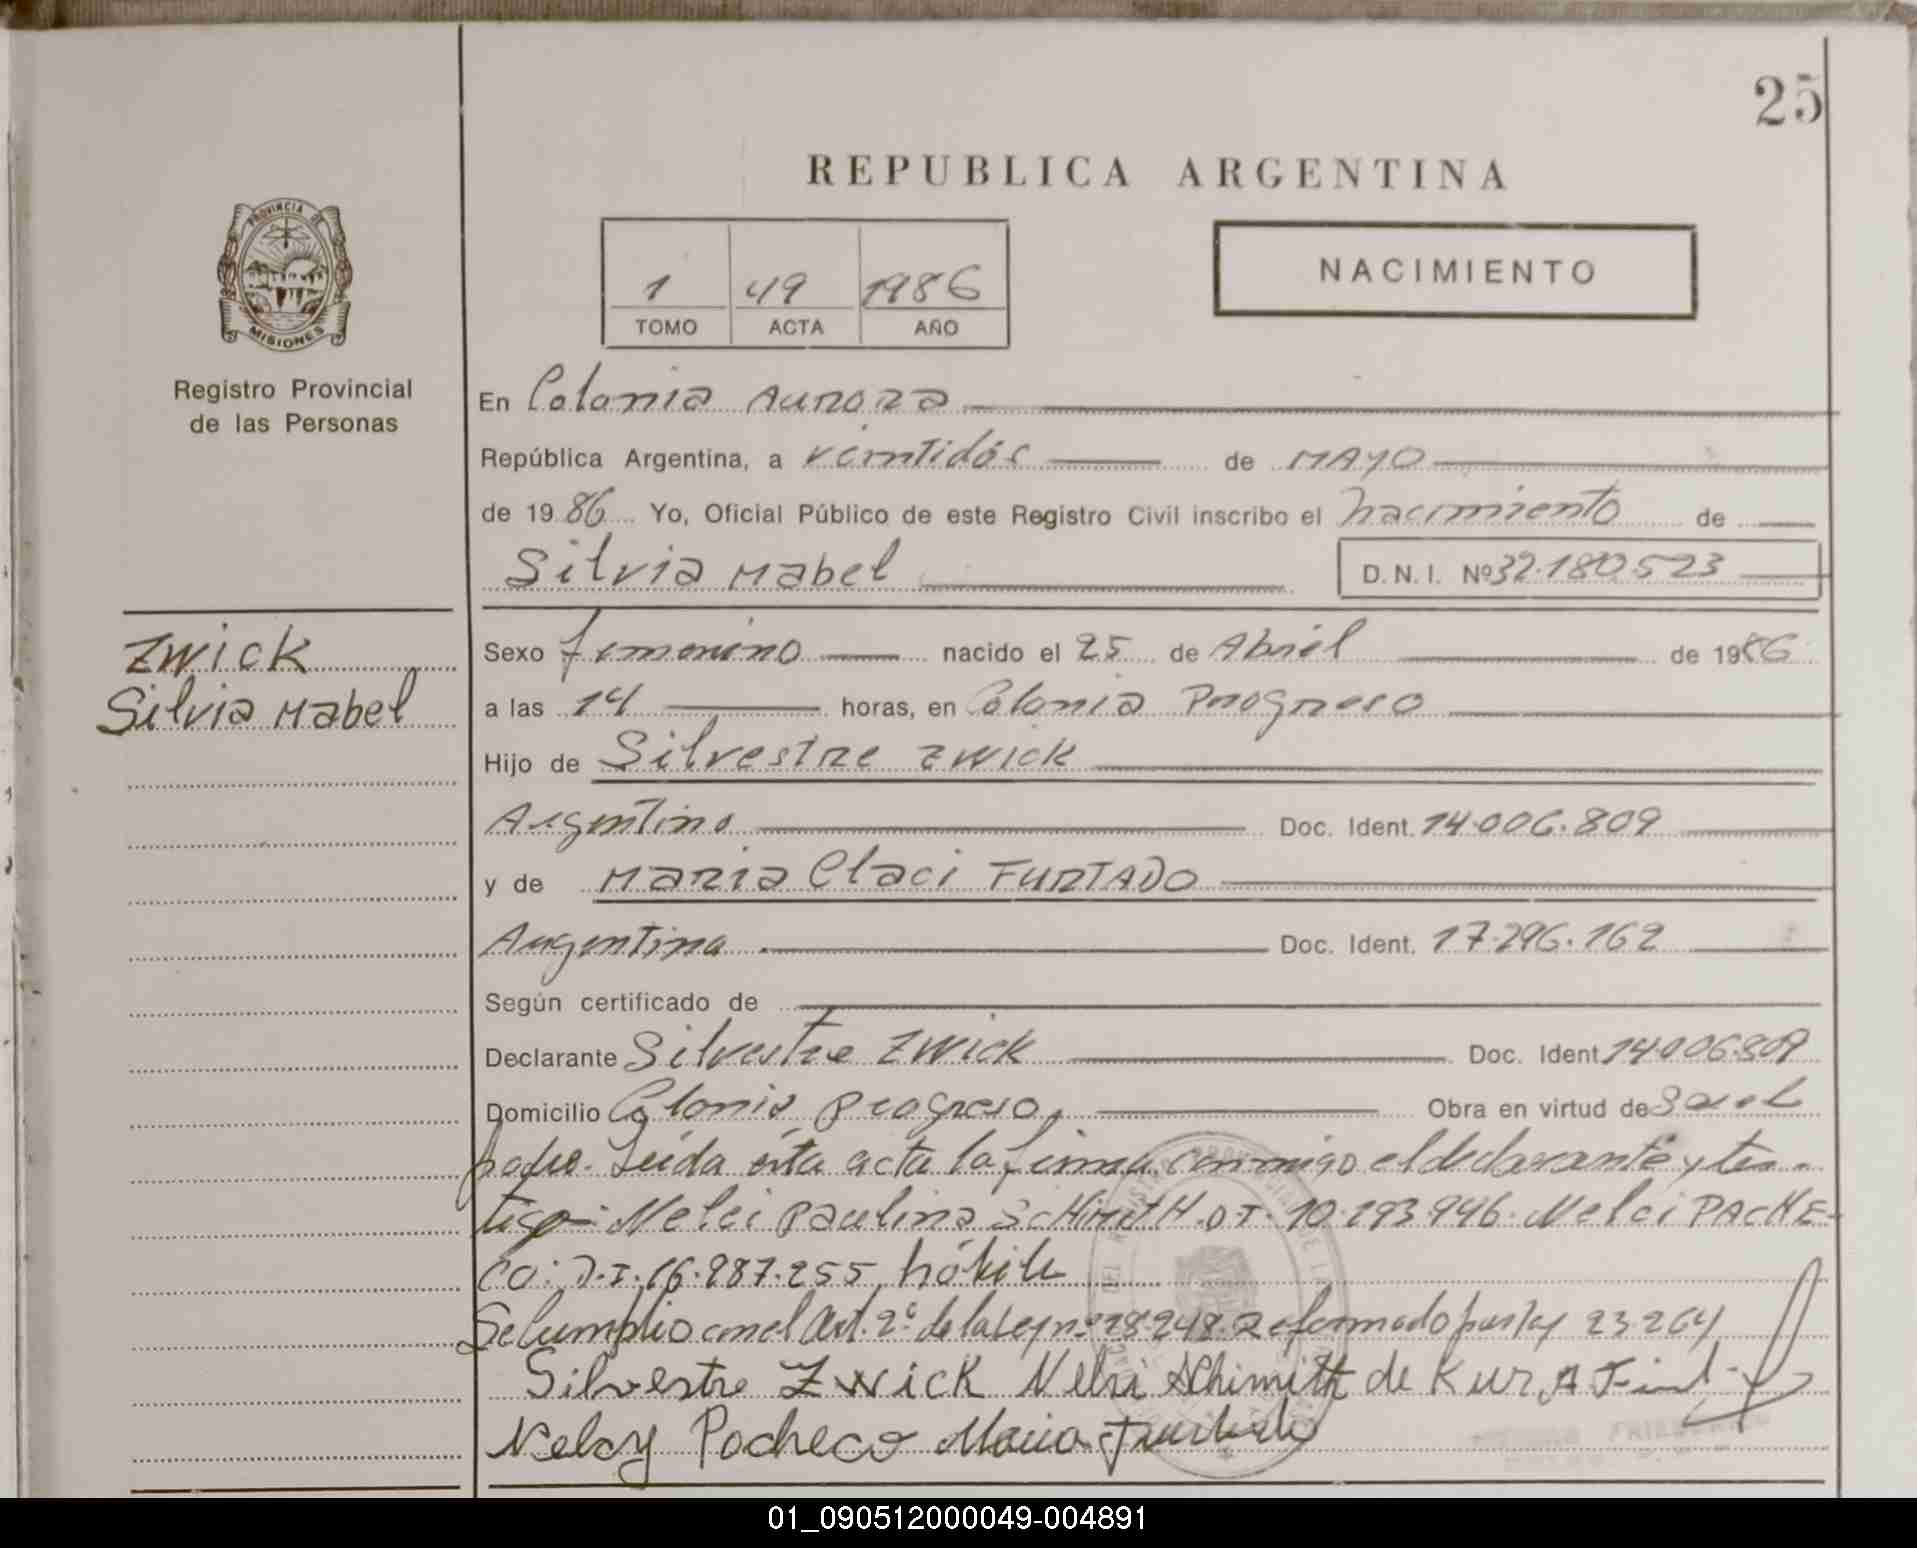 25
REPUBLICA ARGENTINA
PROVINCIA DE
MISIONES
Registro Provincial
de las Personas
1 49 1986
TOMO ACTA AÑO
NACIMIENTO
En Colonia Aurora
República Argentina, a veintidós de MAYO
de 1986 Yo, Oficial Público de este Registro Civil inscribo el nacimiento de
Silvia Mabel D.N.I. Nº 32.180.523
Zwick
Silvia Mabel
Sexo femenino nacido el 25 de Abril de 1986
a las 14 horas, en Colonia Progreso
Hijo de Silvestre Zwick
Argentino Doc. Ident. 14.006.809
y de Maria Claci FURTADO
Argentina Doc. Ident. 17.296.162
Según certificado de
Declarante Silvestre Zwick Doc. Ident 14.006.809
Domicilio Colonia Progreso. Obra en virtud de Ser el
padre. Leída ésta acta la firma conmigo el declarante y tes-
tigo: Nelci Paulina SCHimitH. D.I. 10.293.946. Nelci PACHE-
CO: D.I. 16.987.255, hábile
Se Cumplio con el Art. 2º de la Ley nº 18.248. Reformado por Ley 23264
Silvestre Zwick Nelsi Schimith de Kurz
Nelcy Pacheco Maria Furtado
01_090512000049-004891